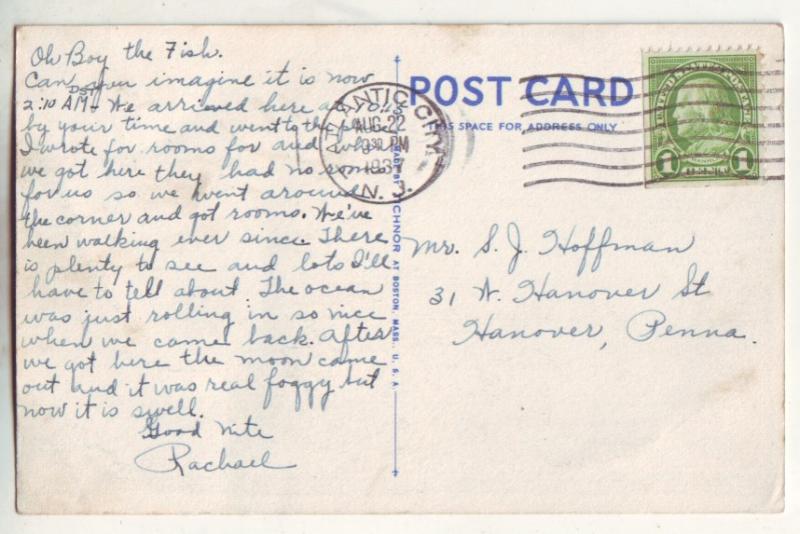 Oh Boy the Fish.
Can you imagine it is now
DST
2:10 AM. We arrived here at
by your time and went to the place
I wrote for rooms for and when
we got here they had no room
for us so we went around
the corner and got rooms. We've
been walking ever since. There
is plenty to see and lots I'll
have to tell about. The ocean
was just rolling in so nice
when we came back. After
we got here the moon came
out and it was real foggy but
now it is swell.
Good Nite
Rachael
POST CARD
THIS SPACE FOR ADDRESS ONLY
ATLANTIC CITY
AUG 22
PM
193
N. J.
MADE BY TICHNOR AT BOSTON, MASS., U. S. A.
1
1
Mr. S. J. Hoffman
31 N. Hanover St
Hanover, Penna.